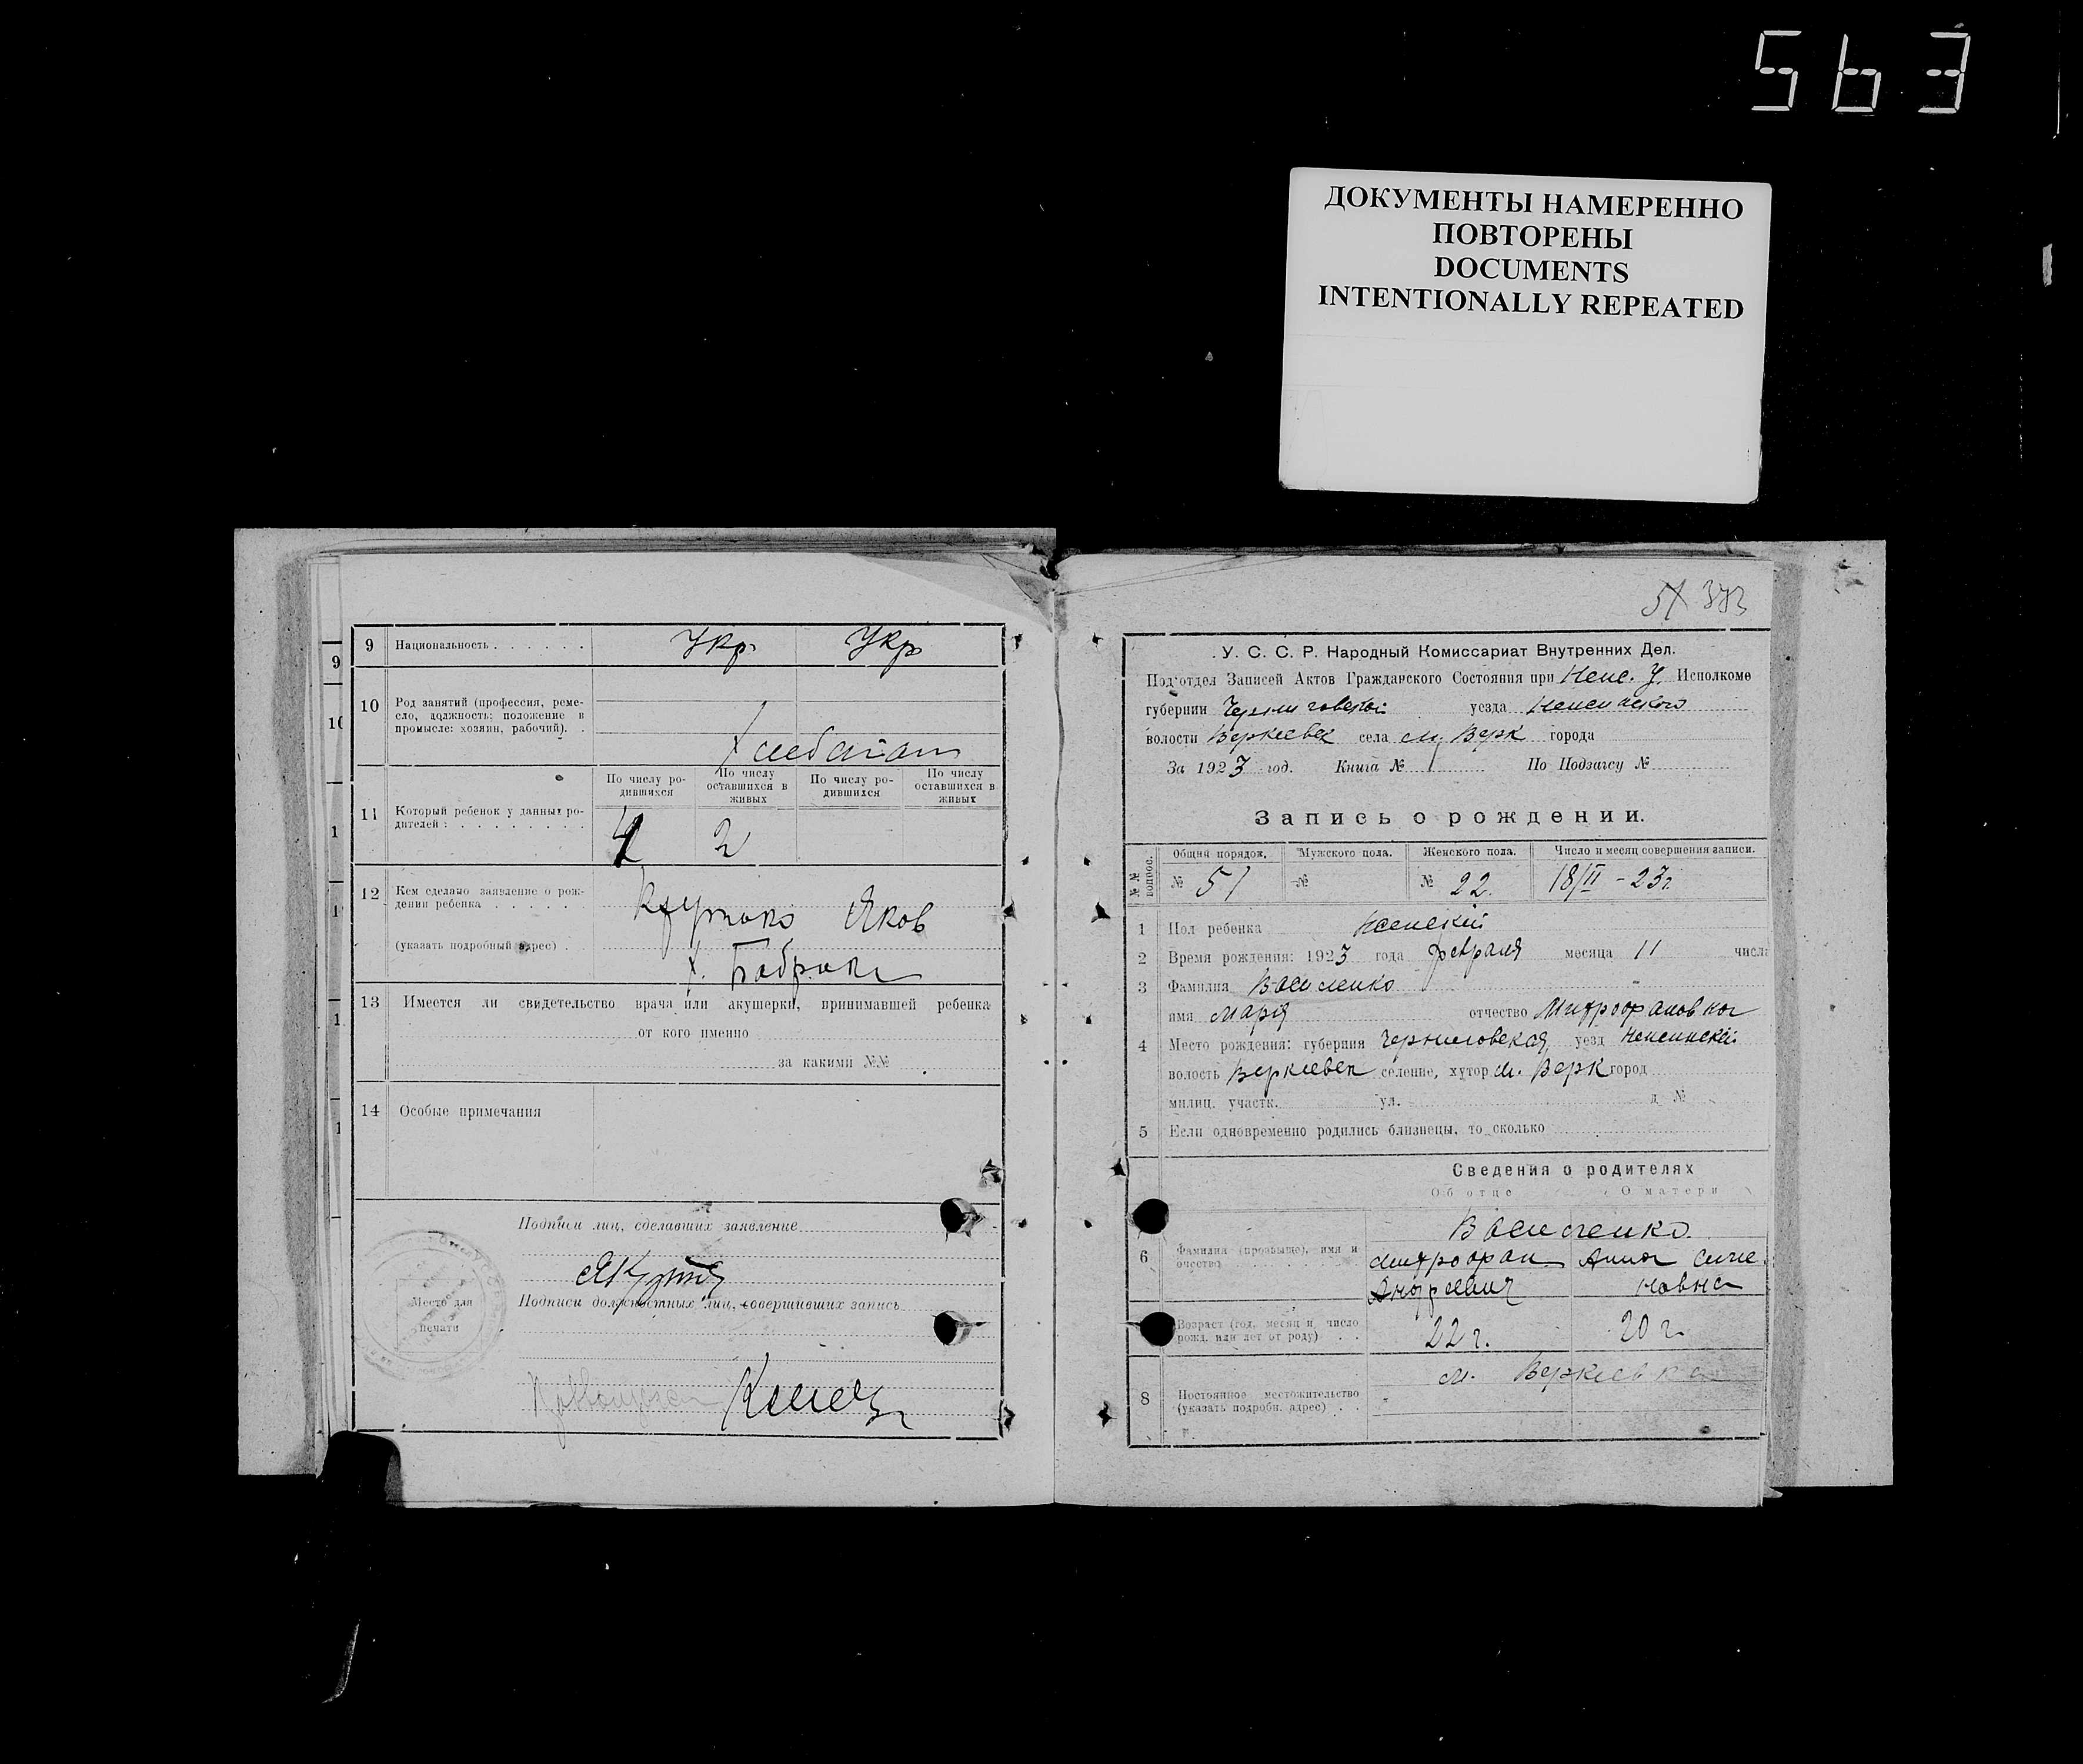 563
ДОКУМЕНТЫ НАМЕРЕННО
ПОВТОРЕНЫ
DOCUMENTS
INTENTIONALLY REPEATED
9 Национальность . . . . . . Укр. Укр
10 Род занятий (профессия, реме-
сло, должность; положение в
промысле: хозяин, рабочий). .
Хлебопаш
По числу ро-
дившихся
По числу
оставшихся в
живых
По числу ро-
дившихся
По числу
оставшихся в
живых
11 Который ребенок у данных ро-
дителей : . . . . . . . .
2
12 Кем сделано заявление о рож-
дении ребенка . . . . .
Яков
(указать подробный адрес) .
х.
13 Имеется ли свидетельство врача или акушерки, принимавшей ребенка
от кого именно
за какими №№
14 Особые примечания
Подписи лиц, сделавших заявление
Подписи должностных лиц, совершивших запись
Место для
печати
51 373
У. С. С. Р. Народный Комиссариат Внутренних Дел.
Под'отдел Записей Актов Гражданского Состояния при Неж. У. Исполкоме
губернии Черниговской уезда Нежинского
волости Веркиевск села м. Верк города
За 1923 год. Книга № 1 По Подзагсу №
Запись о рождении.
№№ вопрос. Общий порядок, Мужского пола. Женского пола. Число и месяц совершения записи.
№ 51 № № 22. 18/II - 23г.
1 Пол ребенка женский
2 Время рождения: 1923 года февраля месяца 11 числа
3 Фамилия Василенко
имя Мария отчество Митрофановна
4 Место рождения: губерния Черниговская уезд Нежинский
волость Веркиевск селение, хутор м. Верк город
милиц. участк. ул. д №
5 Если одновременно родились близнецы, то сколько
Сведения о родителях
Об отце О матери
Василенко
6 Фамилия (прозвище), имя и
отчество
Митрофан Анна Симо
Андреевич новна
Возраст (год, месяц и число
рожд. или лет от роду) . .
22 г. 20 г.
м. Веркиевка
8 Постоянное местожительство
(указать подробн. адрес) . .